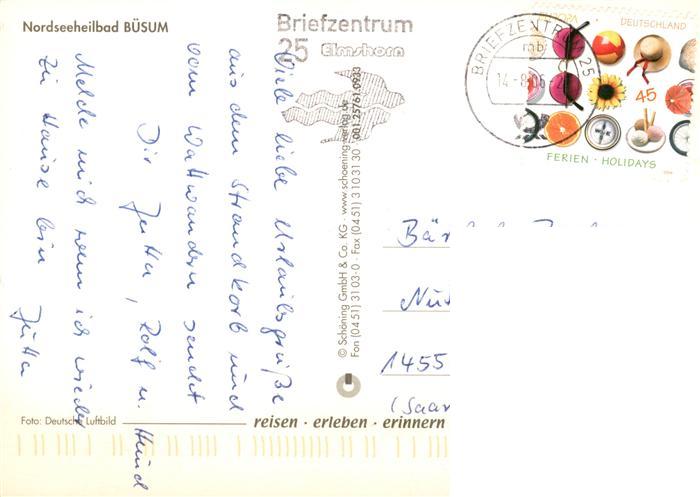 Nordseeheilbad BÜSUM
Briefzentrum
25 Elmshorn
BRIEFZENTRUM 25
mb
14.-8.06
EUROPA
DEUTSCHLAND
45
FERIEN · HOLIDAYS
Viele liebe Urlaubsgrüße
aus dem Strandkorb und
vom Wattwandern sendet
Dir Jutta, Rolf u. Hund
Melde mich wenn ich wieder
zu Hause bin Jutta
© Schöning GmbH & Co. KG · www.schoening-verlag.de
Fon (04 51) 3103-0 · Fax (04 51) 3103130 · 001.25761.0933
Bär
Nu
1455
(Saar
Foto: Deutsche Luftbild
reisen · erleben · erinnern